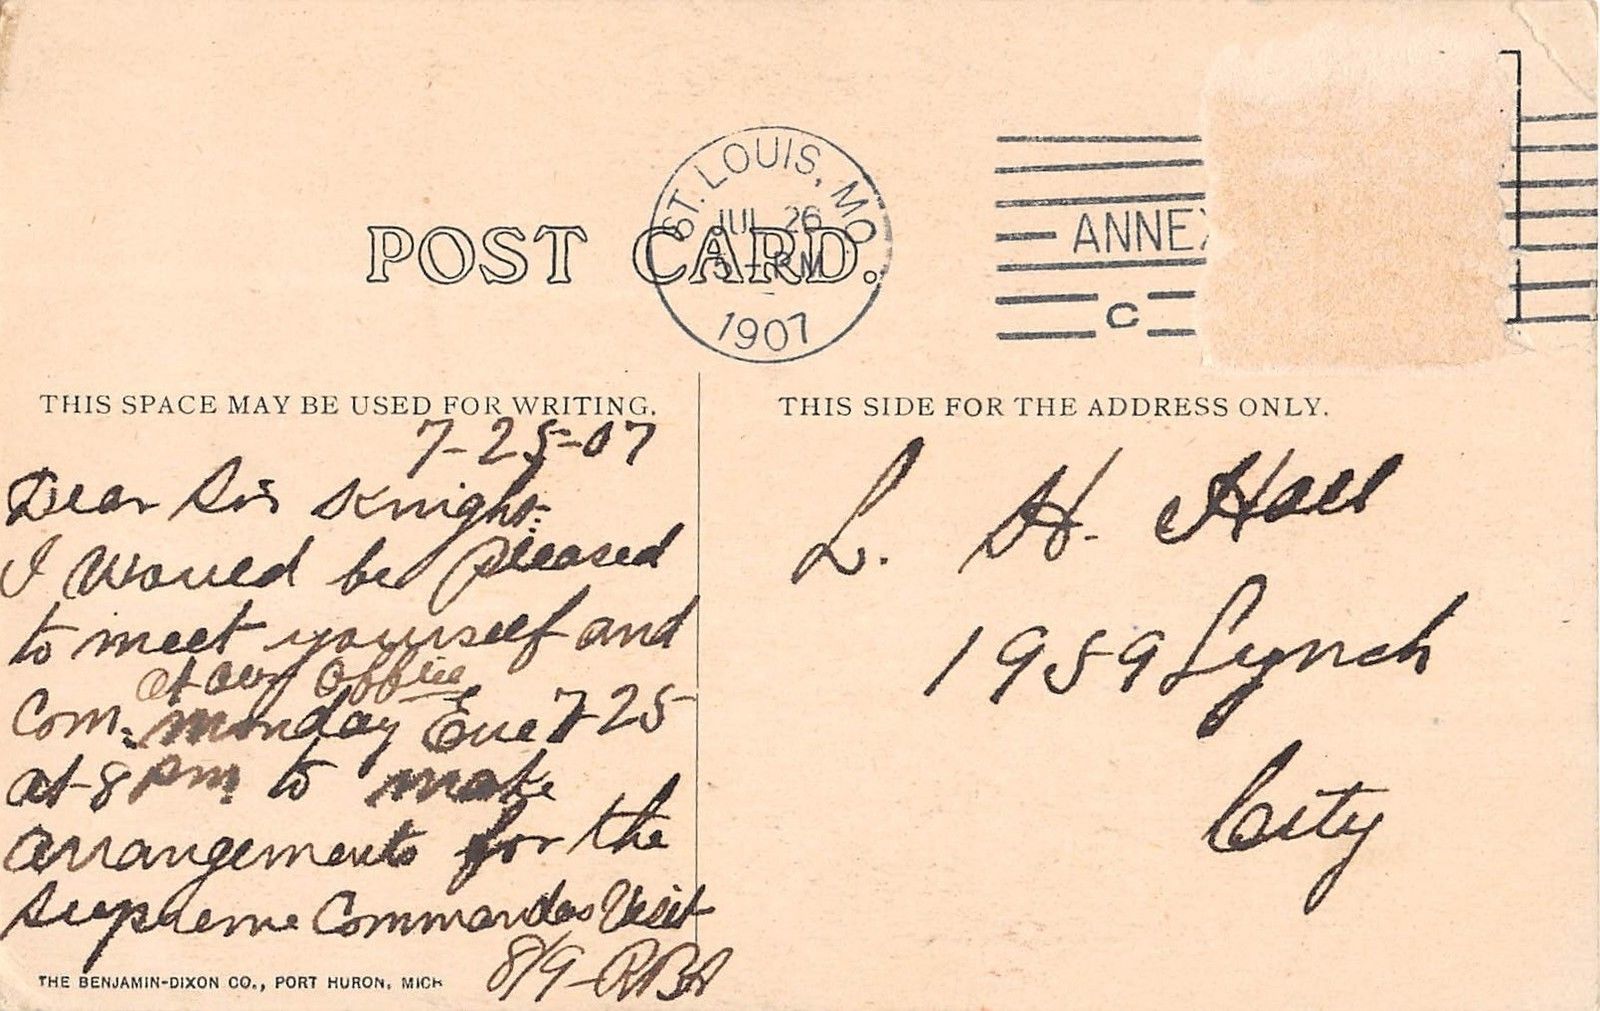 ST. LOUIS, MO.
JUL 26
5-PM
1907
ANNEX
C
POST CARD.
THIS SPACE MAY BE USED FOR WRITING.
7-25-07
Dear Sir Knight:
I Would be pleased
to meet yourself and
at our office
Com. Monday Eve 7-25
at 8 PM to make
arrangements for the
Supreme Commanders Visit
8/9-RBA
THE BENJAMIN-DIXON CO., PORT HURON, MICH
THIS SIDE FOR THE ADDRESS ONLY.
L. H. Hall
1959 Lynch
City